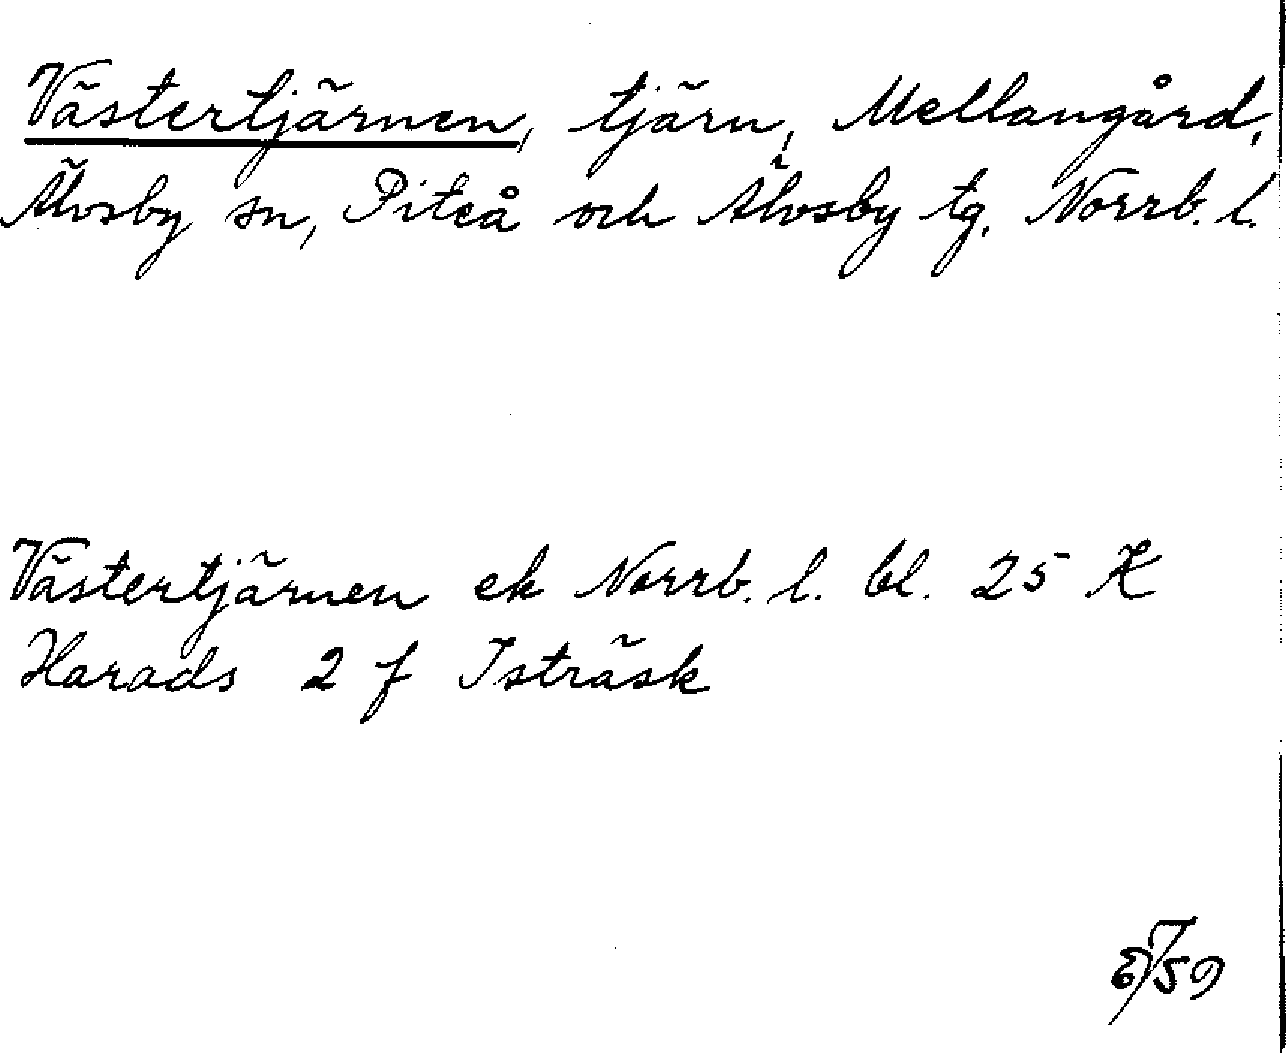 Västertjärnen, tjärn, Mellangård,
Älvsby sn, Piteå och Älvsby tg, Norrb. l.
Västertjärnen ek Norrb. l. bl. 25 K
Harads 2 f Isträsk